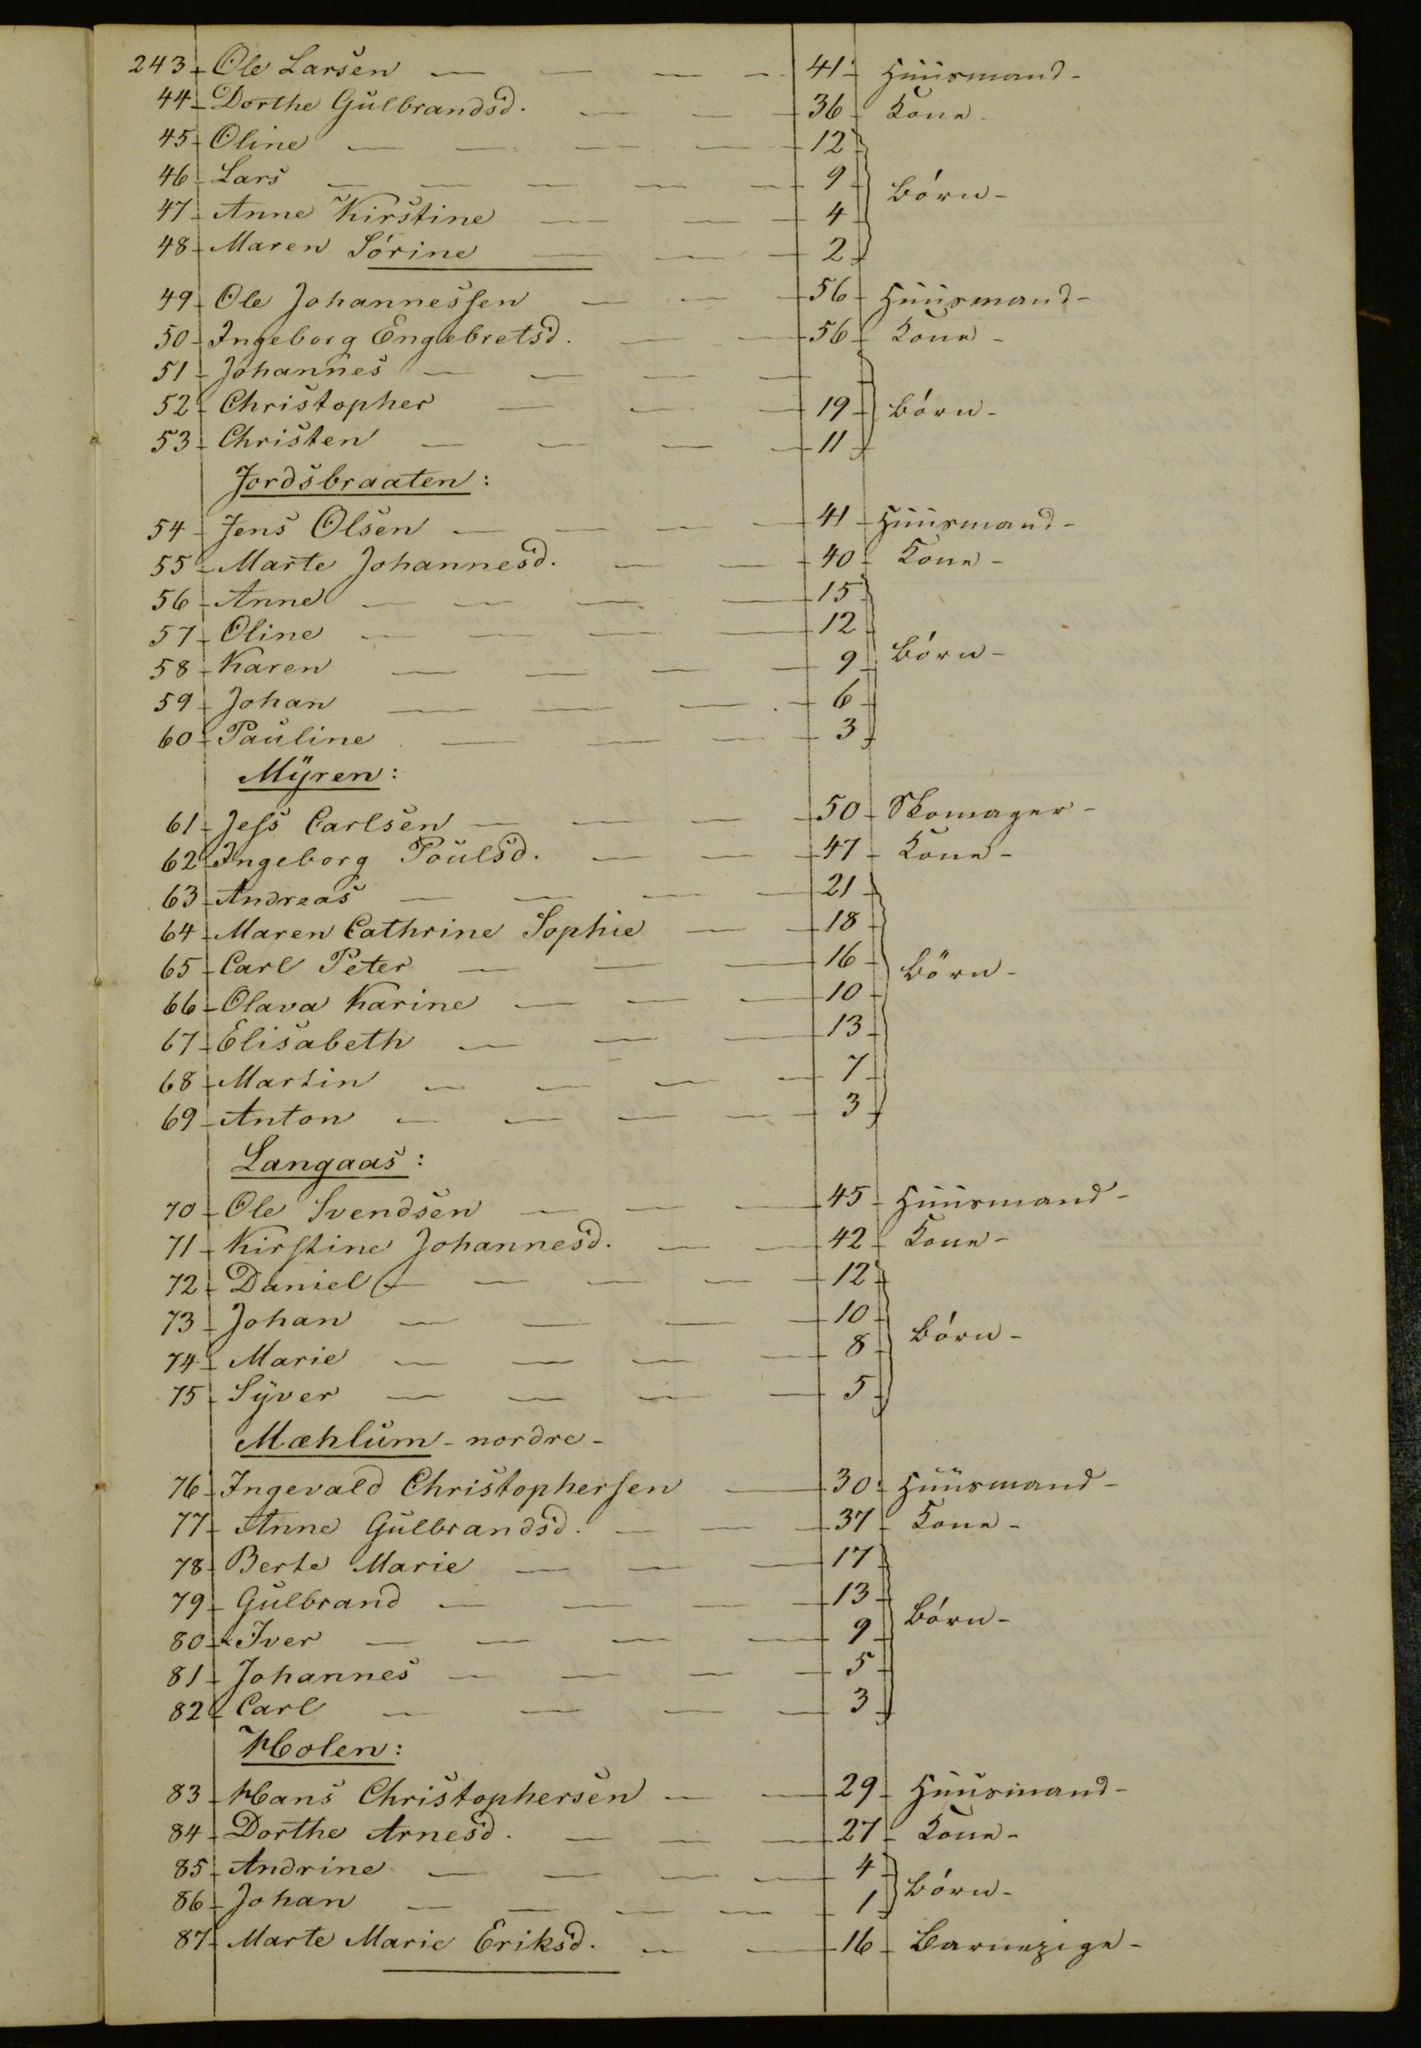 243 Ole Larsen — — — — 41 Huusmand -
44 Dorthe Gulbrandsd. — — 36 Kone -
45 Oline — — — — 12
46 Lars — — — — — 9 Börn -
47 Anne Kirstine — — 4
48 Maren Sörine — — 2
49 Ole Johannessen — — 56 Huusmand -
50 Ingeborg Engebretsd. — — 56 Kone -
51 Johannes — — — —
52 Christopher — — — 19 Börn -
53 Christen — — — — 11
Jordsbraaten:
54 Jens Olsen — — — — 41 Huusmand -
55 Marte Johannesd. — — 40 Kone -
56 Anne — — — — 15
57 Oline — — — — 12
58 Karen — — — — 9 Börn -
59 Johan — — — - 6
60 Pauline — — — 3
Mÿren:
61 Jess Carlsen — — — — 50 Skomager -
62 Ingeborg Poulsd. — — 47 Kone -
63 Andreas — — — — 21
64 Maren Cathrine Sophie — - 18
65 Carl Peter — — — 16 Börn -
66 Olava Karine — — — 10
67 Elisabeth — — — 13
68 Martin — — — - 7
69 Anton — — — — 3
Langaas:
70 Ole Svendsen — — — 45 Huusmand -
71 Kirstine Johannesd. — — 42 Kone -
72 Daniel — — — — 12
73 Johan — — — - 10
74 Marie — — — — 8 Börn -
75 Sÿver — — — — 5
Mæhlum - nordre -
76 Ingevald Christophersen — 30 Huusmand -
77 Anne Gulbrandsd. — — — 37 Kone -
78 Berte Marie — — — 17
79 Gulbrand — — — — 13
80 Iver — — — — 9 Börn -
81 Johannes — — — — 5
82 Carl — — — — 3
Holen:
83 Hans Christophersen — — 29 Huusmand -
84 Dorthe Arnesd. — — — 27 Kone -
85 Andrine — — — — 4
86 Johan — — — — - 1 Börn -
87 Marte Marie Eriksd. — — 16 Barnepige -